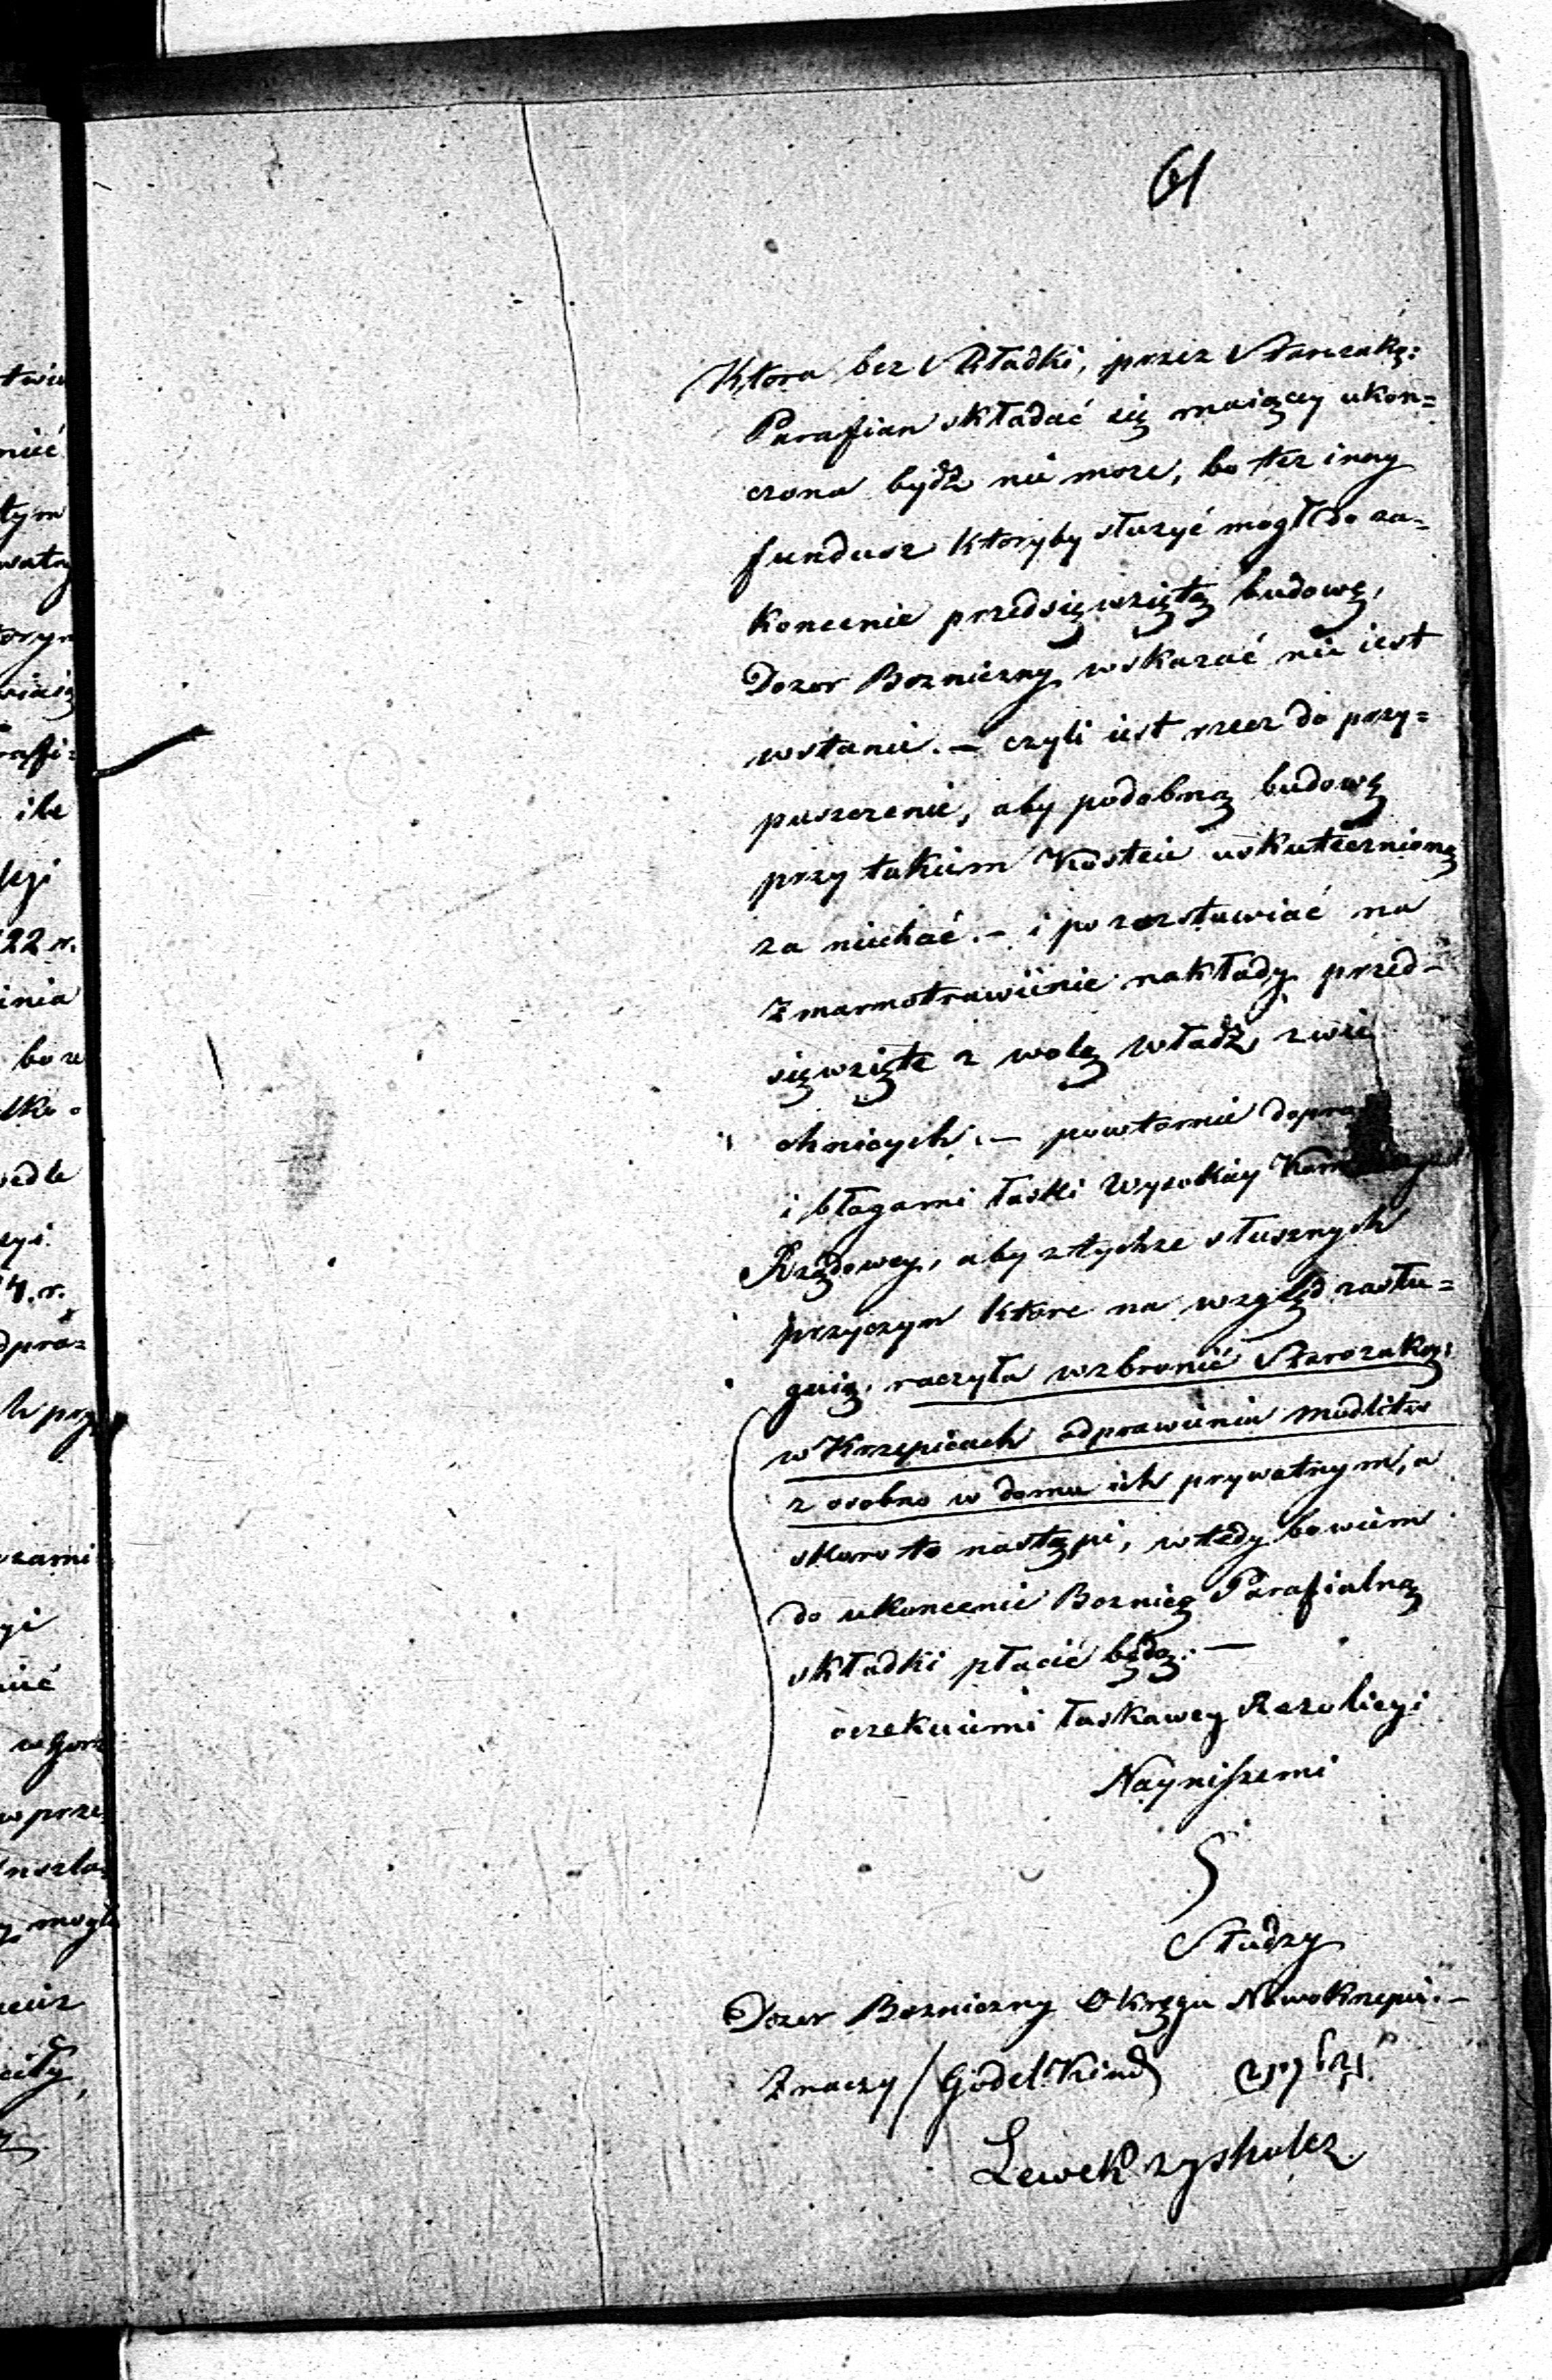 61
Ktora bez Składki, przez Starozakę:
Parafian składać się maiącey ukon=
czona bydź nie może, bo też inny
fundusz ktoryby służyć mogł do za=
koncenie przedsięwziętą budowę,
Dozor Bozniczny wskazać nie iest
wstanie. — czyli iest rzecz do przy=
puszczenie, aby podobną budowę
przy takiem Koscie uskutecznioną
za niechać. – i pozozstawiać na
Zmarnotrawienie nakłady przed-
sięwzięte z wolą władz, zwie
chnicych. — powtornie
i błagami łaski Wysokiey
Rządowey, aby ztychże słusznych
przyczyn ktore na wzgląd zasłu=
guią, raczyła wzbronić Starozakę:
w Krzepicach odprawienia modlitw
z osobno w domu ich prywatnym, a
skoro to nastąpi, wtedy bowiem
do ukoncenie Boznicę Parafialną
składki płacić będą. —
oczekuiemi łaskawey Rezolicyi
Nayniższemi
Słudzy
Dozor Bozniczny Okręgu Nowokrzepic. —
Znaczy / Godel Kind
Lewek zysholcz
twie
nić
tym
watny
ile
22 r.
inia
edle
4. r.
zami
w prze
mogła